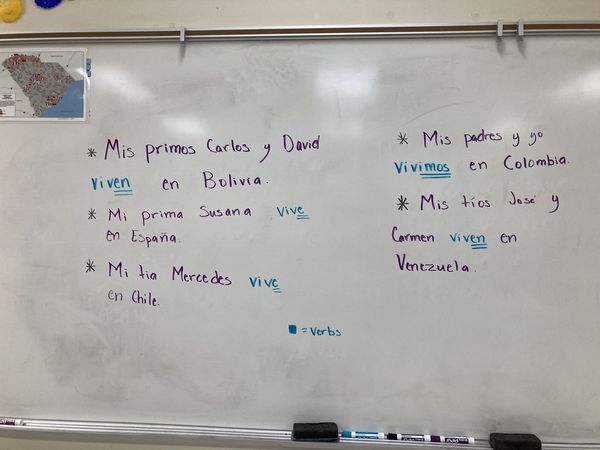 * Mis primos Carlos y David
viven en Bolivia.
* Mi prima Susana vive
en España.
* Mi tia Mercedes vive
en Chile.
* Mis padres y yo
vivimos en Colombia.
* Mis tíos José y
Carmen viven en
Venezuela.
= verbs